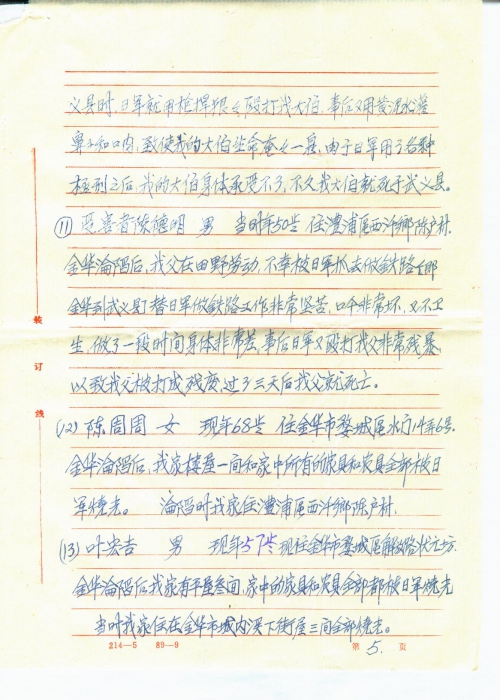 义县时,日军就用枪捍狠々殴打我大伯,事后又用黄泥水灌
鼻子和口内,致使我的大伯生命奄々一息,由于日军用了各种
极刑之后,我的大伯身体承受不了,不久我大伯就死于武义县。
(11) 受害者陈德明 男 当时年50岁 住澧浦区西汴乡陈户村,
金华沦陷后,我父在田野劳动,不幸被日军抓去做铁路工
金华到武义。替日军做铁路工作非常坚苦,口伞非常坏,又不卫
生,做了一段时间身体非常差,事后日军又殴打我父非常残暴,
以致我父被打成残废,过了三天后我父就死亡。
(12) 陈周周 女 现年68岁 住金华市婺城区水门巷6号。
金华沦陷后,我家楼屋一间和家中所有的家具和农具全部被日
军烧光。 沦陷时我家住澧浦区西汴乡陈户村。
(13) 叶宏吉 男 现年57岁 现住金华市婺城区解放路状元坊
金华沦陷后我家有平屋叁间,家中的家具和农具全部都被日军烧光
当时我家住在金华市城内溪下街屋三间全部烧光。
装
订
线
214—5 89—9 第 5. 页